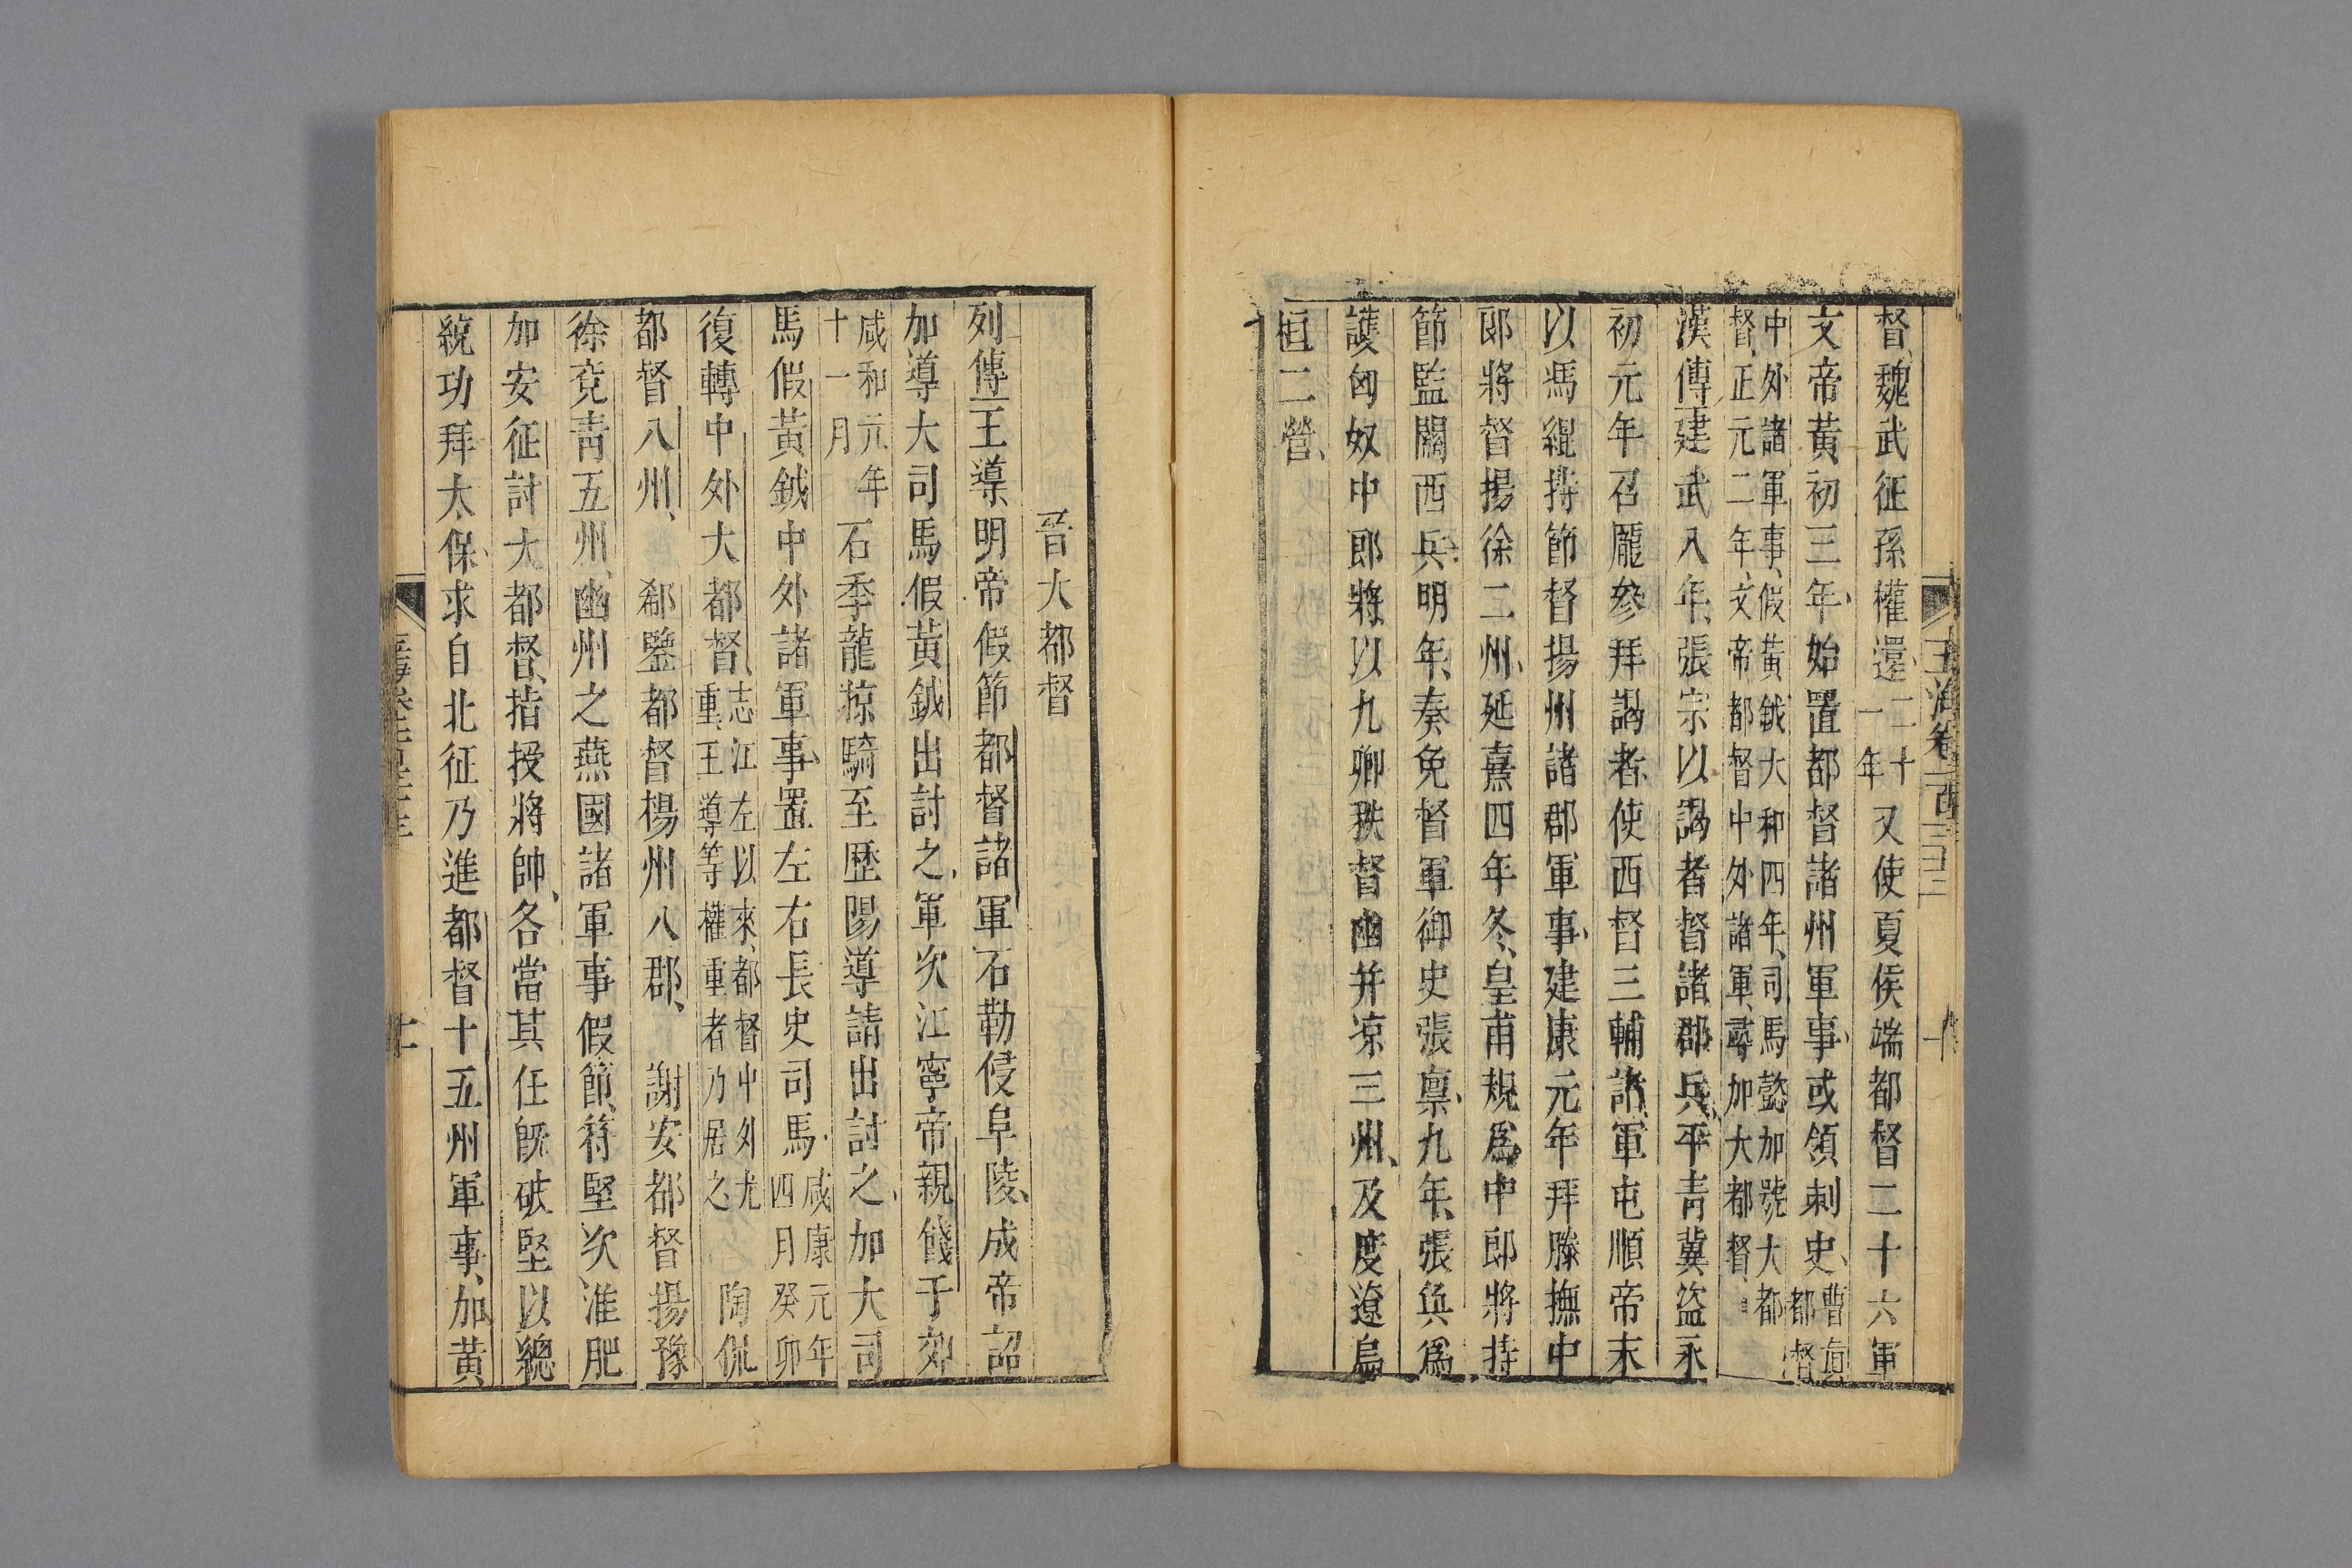 督、魏武征孫權還、二十一年又使夏侯惇都督二十六軍
文帝黃初三年、始置都督諸州軍事、或領刺史、曹真都督
中外諸軍事、假黃鉞大和四年、司馬懿加號大都
督、正元二年、文帝都督中外諸軍、尋加大都督、
漢傳建武八年、張宗以謁者督諸郡兵、平青冀盜永
初元年召龐參拜謁者、使西督三輔諸軍屯順帝末
以馮緄持節督揚州諸郡軍事、建康元年拜滕撫中
郎將督揚徐二州、延熹四年冬、皇甫規為中郎將持
節監關西兵、明年、奏免督軍御史張稟、九年、張奐為
護匈奴中郎將、以九卿秩督幽并凉三州、及度遼烏
桓二營、
玉海卷一百三十二
晉大都督
列傳王導明帝假節都督諸軍石勒侵阜陵、成帝詔
加導大司馬假黃鉞出討之、軍次江寧帝親餞于郊
咸和元年十一月石季龍掠騎至歷陽導請出討之、加大司
馬假黃鉞中外諸軍事、置左右長史司馬、咸康元年四月癸卯
復轉中外大都督、志江左以來、都督中外尤重、王導等權重者乃居之陶侃
都督八州、郗鑒都督楊州八郡、謝安都督揚豫
徐兗青五州、幽州之燕國諸軍事假節、苻堅次淮肥
加安征討大都督、指授將帥、各當其任旣破堅以總
統功拜太保、求自北征乃進都督十五州軍事、加黃